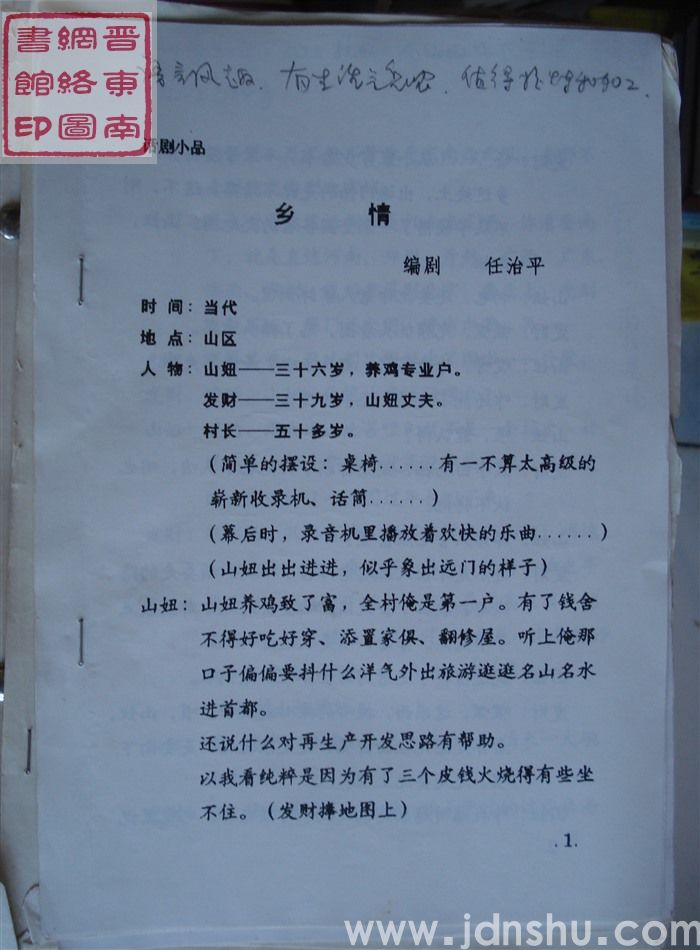 晋东南
网络图
书馆印
语言风趣、有生活气息、值得推敲和加工.
话剧小品
乡 情
编剧 任治平
时 间：当代
地 点：山区
人 物：山妞——三十六岁，养鸡专业户。
发财——三十九岁，山妞丈夫。
村长——五十多岁。
(简单的摆设：桌椅......有一不算太高级的
崭新收录机、话筒......)
(幕后时，录音机里播放着欢快的乐曲......)
(山妞出出进进，似乎象出远门的样子)
山妞：山妞养鸡致了富，全村俺是第一户。有了钱舍
不得好吃好穿、添置家俱、翻修屋。听上俺那
口子偏偏要抖什么洋气外出旅游逛逛名山名水
进首都。
还说什么对再生产开发思路有帮助。
以我看纯粹是因为有了三个皮钱火烧得有些坐
不住。(发财捧地图上)
.1.
www.jdnshu.com